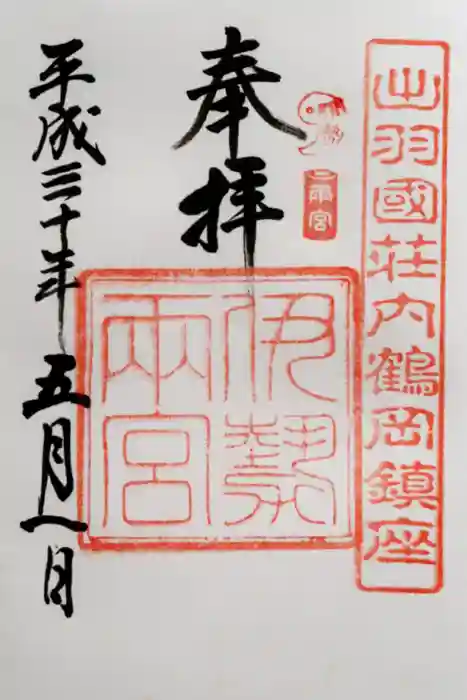 出羽國荘内鶴岡鎮座
両宮
奉拝
伊勢
兩宮
平成三十年五月一日